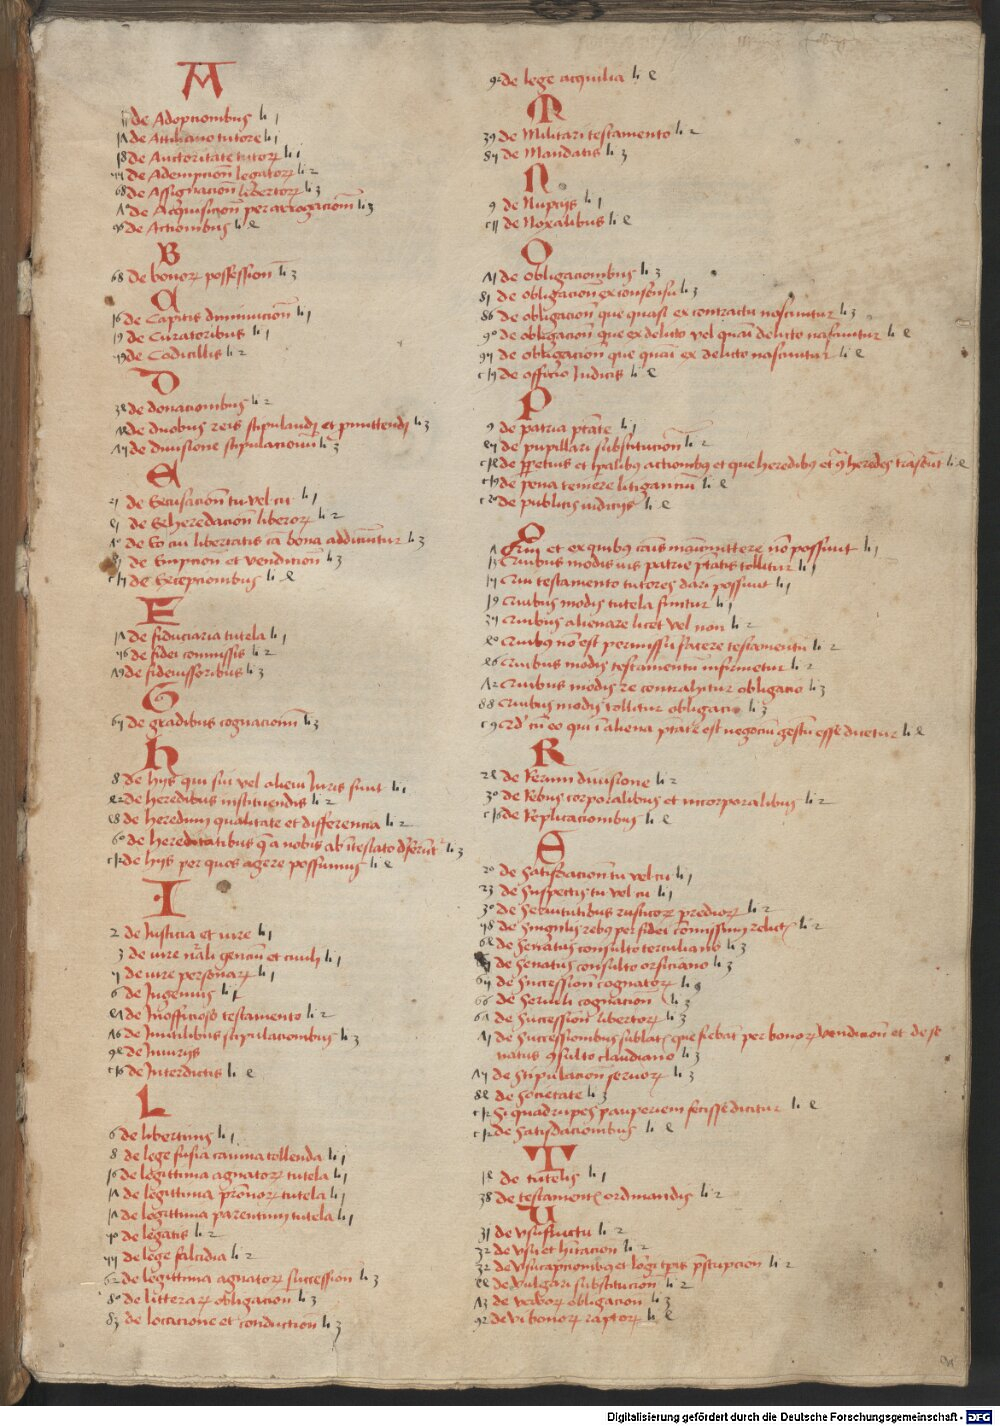 A
11 de Adoptionibus li 1
de Attiliano tutore li 1
18 de Auctoritate tutorꝝ li 1
de Ademption legatorꝝ li 2
68 de Assignation libertorꝝ li 3
de Acquisition per arrogationem li 3
de Actionibus li
B
68 de bonorꝝ possession li 3
C
16 de Capitis diminucion li 1
19 de Curatoribus li 1
de Codicillis li 2
D
de donacionibus li 2
de duobus reis stipulandi et promittendi li 3
de diuisione stipulacionum li 3
E
de Excusacion tu vel cu li 1
de Exheredacion liberorꝝ li 2
de Eo cui libertatis ca bona addicuntur li 3
de Empcion et vendicion li 3
de Excepcionibus li
F
de fiduciaria tutela li 1
de fidei commissis li 2
de fideiussoribus li 3
G
de gradibus cognacionum li 3
H
8 de hijs qui sui vel alieni Iuris sunt li 1
de heredibus instituendis li 2
de heredum qualitate et differencia li 2
60 de hereditatibus q a nobis ab itestato deferunt li 3
de hijs per quos agere possumus li
I
2 de Iusticia et iure li 1
3 de iure nrali gencium et ciuili li 1
de iure personarꝝ li 1
6 de Ingenuis li 1
de Inofficioso testamento li 2
de Inutilibus stipulacionibus li 3
de Iniurijs
de Interdictis li
L
6 de libertinis li 1
8 de lege fusia canina tollenda li 1
16 de legittima agnatorꝝ tutela li 1
de legittima pronorꝝ tutela li 1
de legittima parentum tutela li 1
de legatis li 2
de lege falcidia li 2
62 de legittima agnatorꝝ succession li 3
80 de litterarꝝ obligacion li 3
83 de locacione et conduction li 3
92 de lege acquilia li
M
39 de Militari testamento li 2
de Mandatis li 3
N
9 de Nupcijs li 1
de Noxalibus li
O
de obligacionibus li 3
de obligacion ex consensu li 3
86 de obligacion que quasi ex contractu nascuntur li 3
90 de obligacion que ex delicto vel quasi delicto nascuntur li
de obligacion que quasi ex delicto nascuntur li
de officio Iudicis li
P
9 de patria ptate li 1
de pupillari substitucion li 2
de ppetuis et tpalibus actionibus et que heredibus et heredes transeunt li
de pena temere litigancium li
de publicis iudicijs li
Q
Qui et ex quibus causis manumittere no possunt li 1
13 Quibus modis ius patrie ptatis tollitur li 1
Qui testamento tutores dari possunt li 1
19 Quibus modis tutela finitur li 1
Quibus alienare licet vel non li 2
Quibus no est permissu facere testamentu li 2
Quibus modis testamentum infirmetur li 2
Quibus modis re contrahitur obligatio li 3
88 Quibus modis tollitur obligacio li 3
Qd cu eo qui i aliena ptate est negociu gestu esse dicetur li
R
de Rerum diuisione li 2
30 de Rebus corporalibus et incorporalibus li 2
de Replicacionibus li
S
20 de Satisdacion tu vel cu li 1
23 de Suspectis tu vel cu li 1
30 de Seruitutibus rusticorꝝ prediorꝝ li 2
de Singulis rebus per fidei commissum relict li 2
de Senatus consulto terculiano li 3
de Senatus consulto orficiano li 3
de Succession cognatorꝝ li
66 de Seruili cognacion li 3
de Succession libertorꝝ li 3
de Successionibus sublat que fiebat per bonorꝝ vendicion et de se
natus consulto claudiano li 3
de Stipulacion seruorꝝ li 3
de Societate li 3
Si quadrupes pauperiem fecisse dicitur li
de Satisdacionibus li
T
de tutelis li 1
38 de testament ordinandis li 2
U
31 de vsufructu li 2
32 de vsu et habitacion li 2
32 de vsucapcionibus et longi tpis prescripcion li 2
de Vulgari substitucion li 2
de verborꝝ obligacion li 3
92 de vi bonorꝝ raptorꝝ li
Digitalisierung gefördert durch die Deutsche Forschungsgemeinschaft - DFG